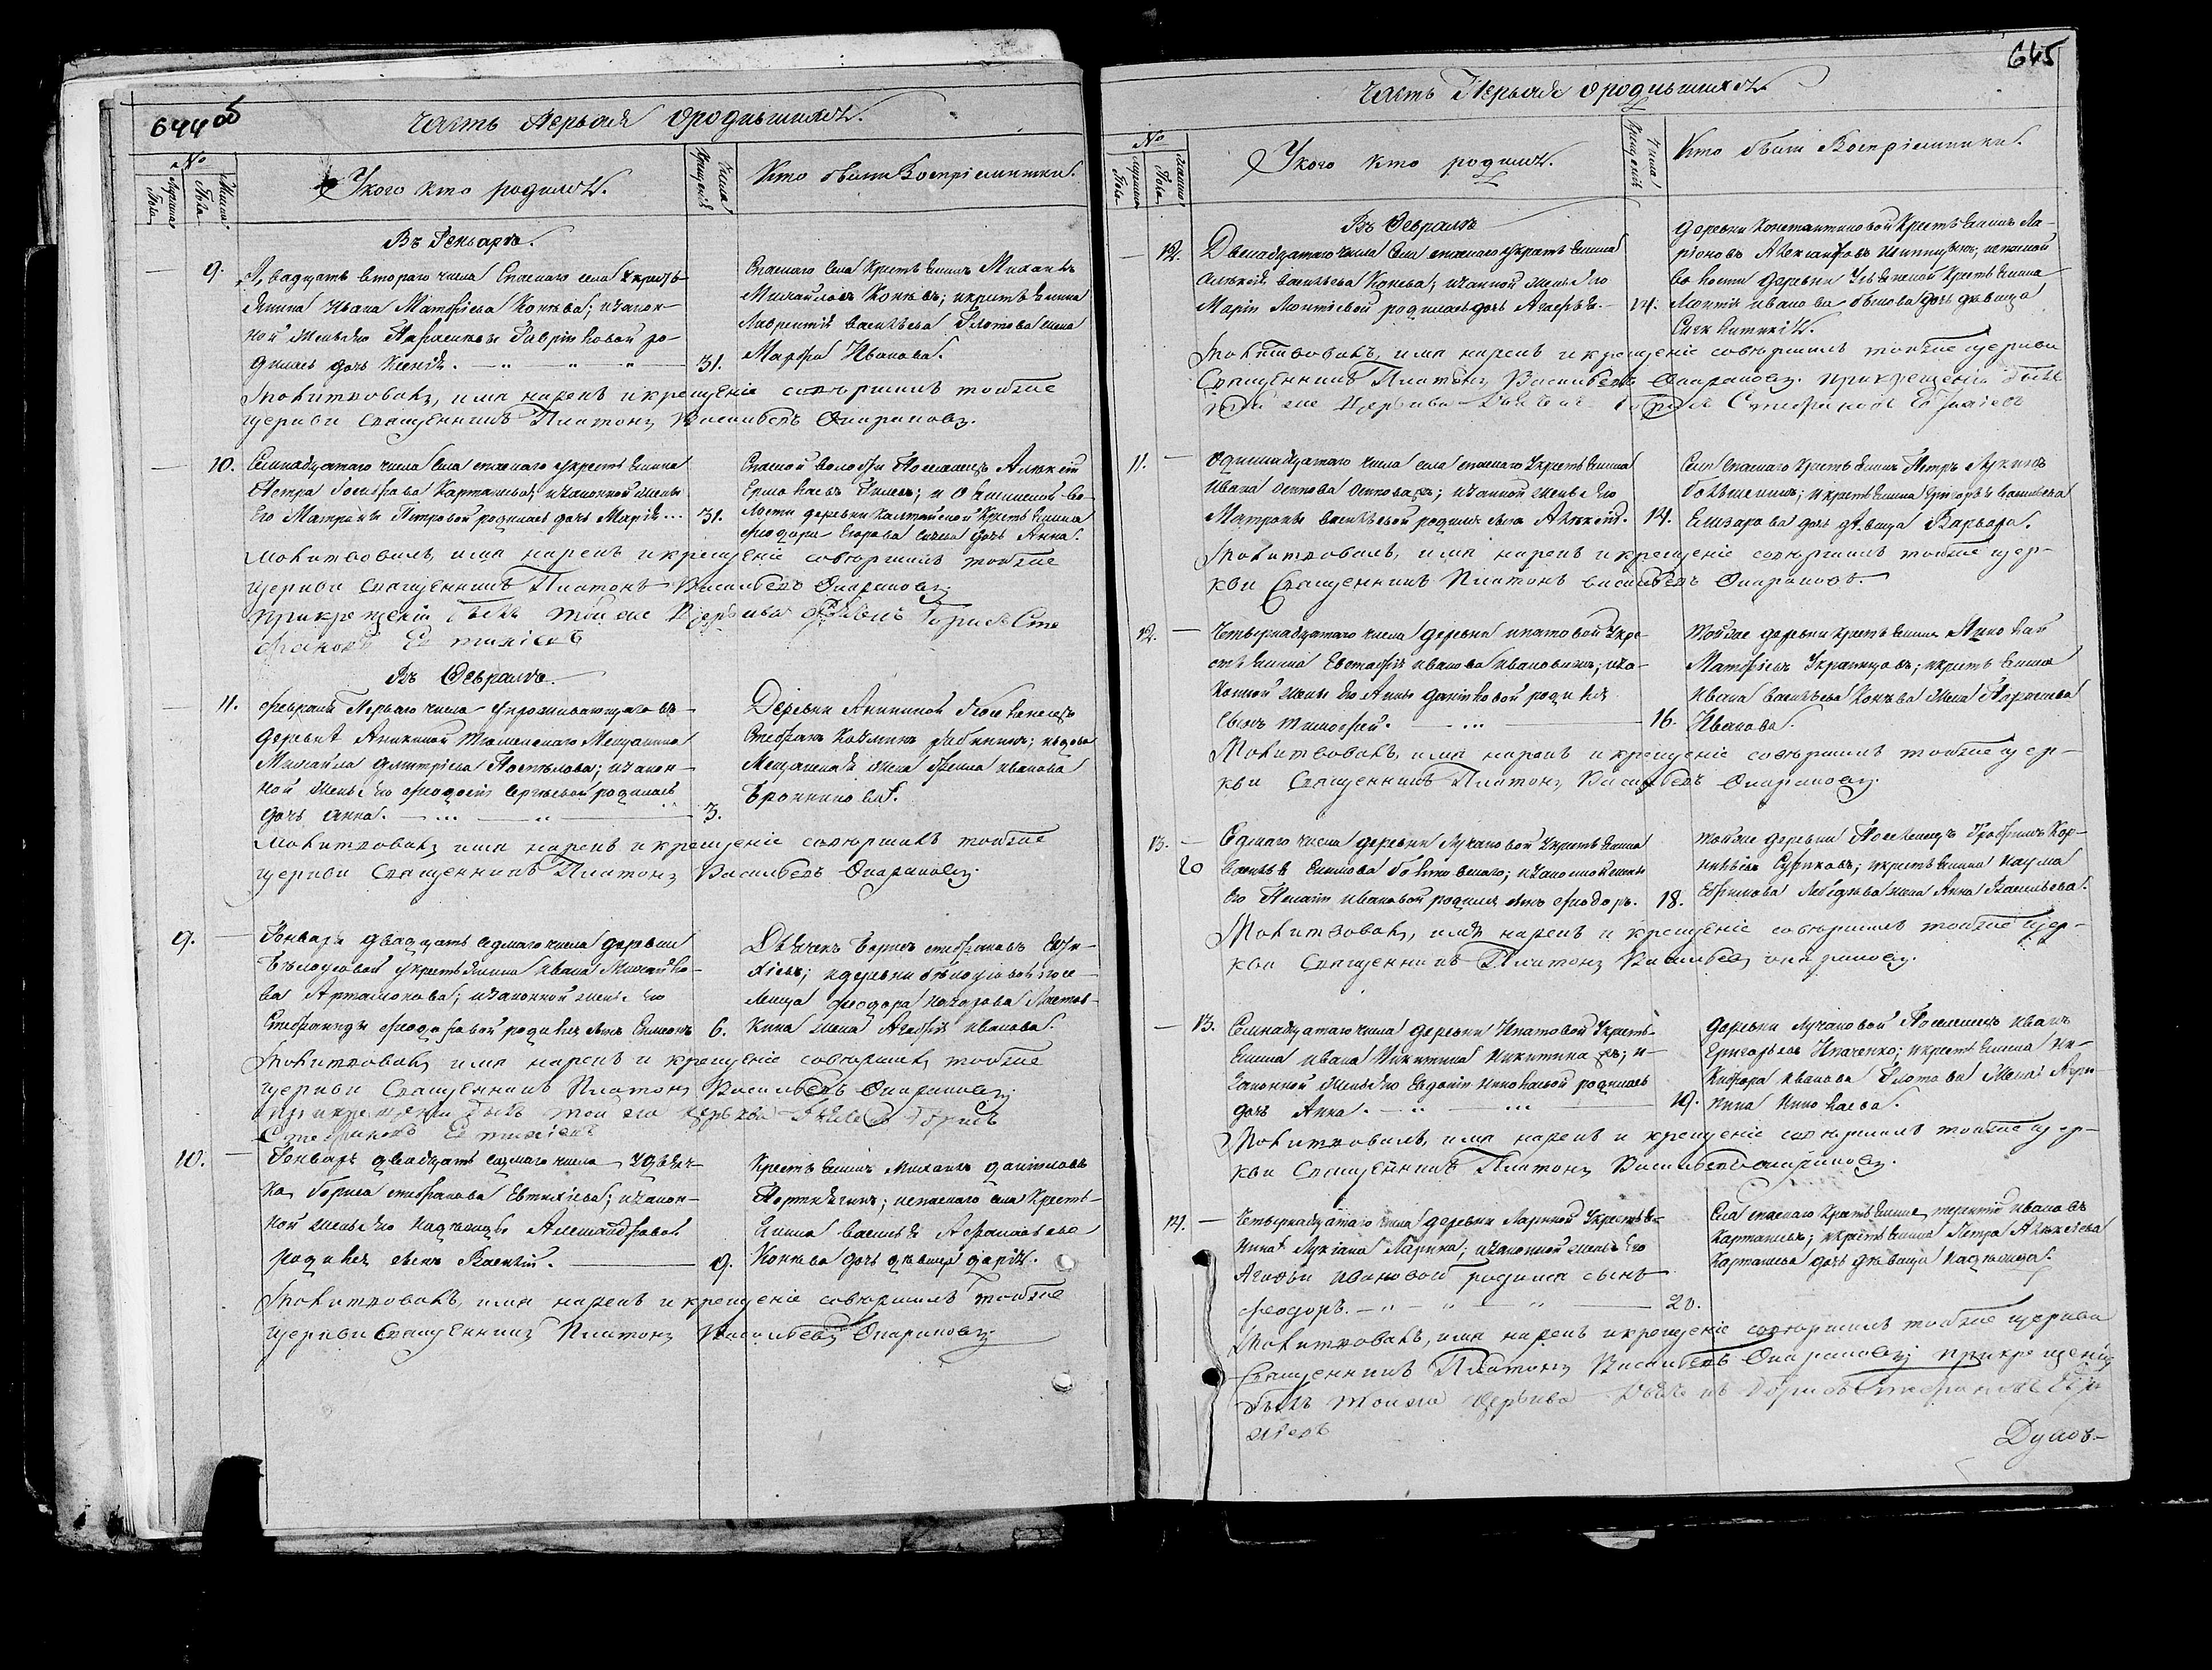 644 об
Часть Первая о родившихся.
№
Мужеска Пола
Женска Пола
У кого кто родился.
Числа Крещенія
Кто были Воспріемники.
Въ Генварѣ.
9. Двадцать втораго числа Спаскаго села у кресть-
янина Ивана Матфіева Конева; и закон-
ной жены его Параскевы Гавриловой ро-
дилась дочь Ксенія. 31.
Спаскаго села Крестьянинъ Михаилъ
Михайловъ Коневъ; и крестьянина
Лаврентія Васильева Плотова жена
Марфа Иванова.
Молитвовалъ, имя нарекъ и крещеніе совершилъ тойже
церкви Священникъ Платонъ Васильевъ Опарановъ.
10. Семнадцатаго числа села спаскаго у крестьянина
Петра Карташева, и законной жены
Его Матроны Петровой родилась дочь Марія... 31.
Спаской волости Поселенецъ Алексѣй
деревни Калтайской Крестьянина
дочь Анна.
Молитвовалъ, имя нарекъ и крещеніе совершилъ тойже
церкви Священникъ Платонъ Васильевъ Опарановъ
при крещеніи былъ тойже Церкви Дьячекъ Борисъ Сте
фановъ Евтихіевъ
Въ Февралѣ.
11. Февраля Перваго числа у проживающаго въ
деревнѣ Аникиной Тюменскаго Мещанина
Михайла Дмитріева Поспѣлова; и закон-
ной жены его Феодосіи Сергѣевой родилась
дочь Анна. 3.
Деревни Аникиной Поселенецъ
Стефанъ Козминъ; и вдова
Мещанская жена Иванова
Бронникова.
Молитвовалъ имя нарекъ и крещеніе совершилъ тойже
церкви Священникъ Платонъ Васильевъ Опарановъ.
9. Генваря двадцать седмаго числа деревни
Бѣлоусовой у крестьянина Ивана Михайло-
ва Артамонова; и законной жены его
Стефаниды Феодоровой родился сынъ Симеонъ 6.
Дьячекъ Борисъ Стефановъ Евти-
хіевъ; и деревни Бѣлоусовой посе-
ленца Феодора Назарова
жена Агафія Иванова.
Молитвовалъ имя нарекъ и крещеніе совершилъ тойже
церкви Священникъ Платонъ Васильевъ Опарановъ
при крещеніи былъ той же церкви Дьячекъ Борисъ
Стефановъ Евтихіевъ
10. Генваря двадцать седмаго числа у дьяч-
ка Бориса Стефанова Евтихіева; и закон-
ной жены его Надежды Александровой
родился сынъ Василій. 9.
Крестьянинъ Михаилъ Даниловъ
Портнягинъ; и спаскаго села Кресть-
янина Василья Афанасьева
Конева дочь дѣвица Дарія.
Молитвовалъ, имя нарекъ и крещеніе совершилъ тойже
церкви Священникъ Платонъ Васильевъ Опарановъ.
645
Часть Первая о родившихся.
№
Мужеска Пола
Женска Пола
У кого кто родился.
Числа Крещенія
Кто были Воспріемники.
Въ Февралѣ
12. Двенадцатаго числа села спаскаго у крестьянина
Алексѣя Васильева Конева; и законной жены его
Маріи Леонтіевой родилась дочь Агафья. 14.
деревни Константиновой Крестьянинъ Ла-
ріоновъ; и спаской
волости деревни Крестьянина
Леонтія Иванова дочь дѣвица
Молитвовалъ, имя нарекъ и крещеніе совершилъ тойже церкви
Священникъ Платонъ Васильевъ Опарановъ. при крещеніи былъ
той же Церкви Дьячекъ Борисъ Стефановъ Евтихіевъ
11. Одиннадцатаго числа села спаскаго у крестьянина
Ивана Осипова; и законной жены его
Матроны Васильевой родился сынъ Алексѣй. 14.
Села спаскаго крестьянинъ Петръ Лукинъ
Большанинъ; и крестьянина Григорья Васильева
Елизарова дочь дѣвица Варвара.
Молитвовалъ, имя нарекъ и крещеніе совершилъ тойже цер-
кви Священникъ Платонъ Васильевъ Опарановъ.
12. Четырнадцатаго числа деревни Ипатовой у кре-
стьянина Евстафія Иванова; и за-
конной жены его Анны Даниловой родился
сынъ Тимофей. 16.
Тойже деревни крестьянинъ Николай
Матфіевъ Украинцовъ; и крестьянина
Ивана Васильева Конева жена Параскева
Иванова.
Молитвовалъ, имя нарекъ и крещеніе совершилъ тойже цер-
кви Священникъ Платонъ Васильевъ Опарановъ.
13. Седмаго числа деревни Лучановой у крестьянина
20
Василья; и законной жены
его Пелагіи Ивановой родился сынъ Феодоръ. 18.
Тойже деревни Поселенецъ Трофимъ Кор-
ниліевъ Суриковъ; и крестьянина Наума
Ефимова жена Анна Васильева.
Молитвовалъ, имя нарекъ и крещеніе совершилъ тойже цер-
кви Священникъ Платонъ Васильевъ Опарановъ.
13. Семнадцатаго числа деревни Ипатовой у кресть-
янина Ивана Никитина; и
законной жены его Евдокіи Николаевой родилась
дочь Анна. 19.
Деревни Лучановой Поселенецъ Иванъ
Григорьевъ Ткаченко; и крестьянина Ни-
кифора Иванова Плотова жена Агри-
пина Николаева.
Молитвовалъ, имя нарекъ и крещеніе совершилъ тойже цер-
кви Священникъ Платонъ Васильевъ Опарановъ.
14. Четырнадцатаго числа деревни Лариной у крестья-
нина Лукіана Ларина; и законной жены его
Агафьи Ивановой родился сынъ
Феодоръ. 20.
Села спаскаго Крестьянинъ Терентій Ивановъ
Карташевъ; и крестьянина Петра Алексѣева
Карташева дочь дѣвица Надежда.
Молитвовалъ, имя нарекъ и крещеніе совершилъ тойже церкви
Священникъ Платонъ Васильевъ Опарановъ; при крещеніи
былъ той же Церкви Дьячекъ Борисъ Стефановъ Евти
хіевъ